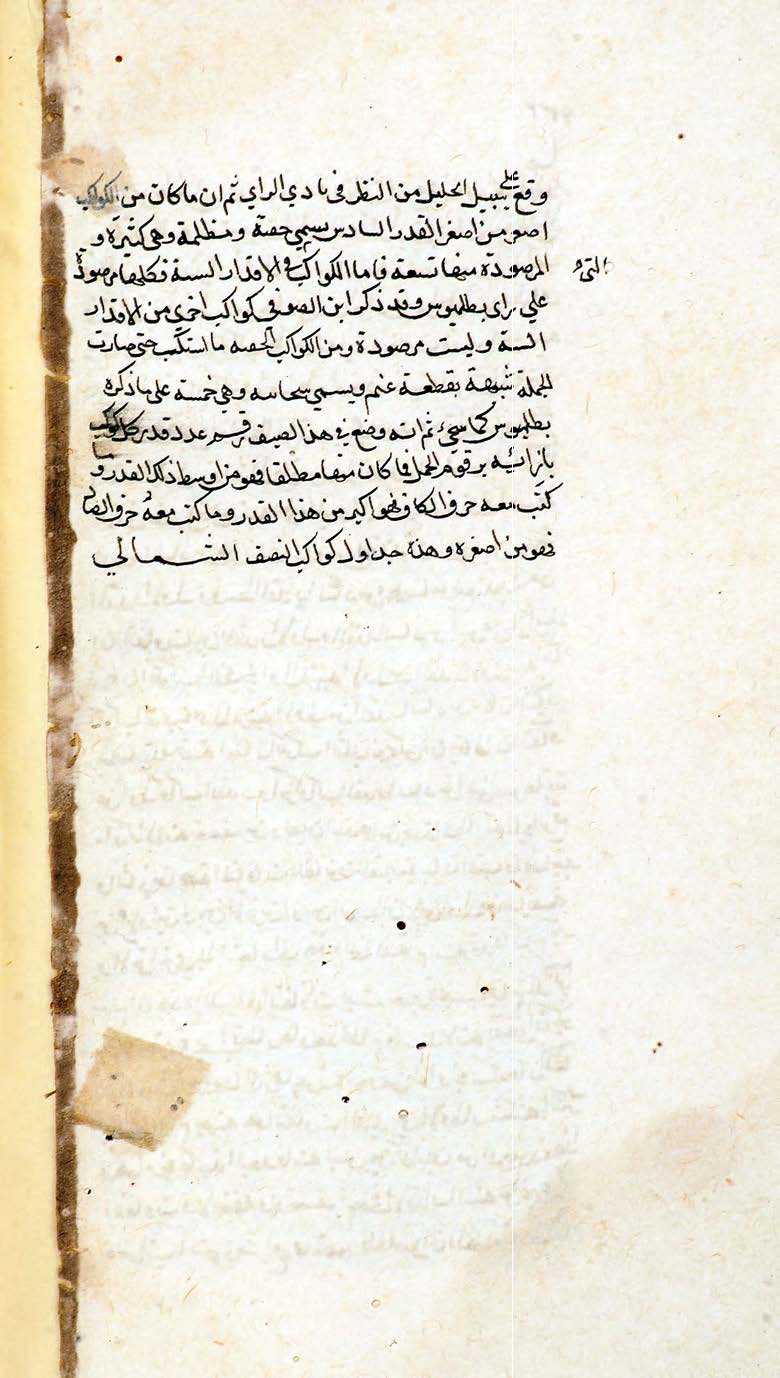 وقع على سبيل الجليل من النظر في بادي الراي ثم ان ما كان من الكواكب
اصغر من اصغر القدر السادس يسمي خفية ومظلمة وهي كثيرة و
التي
المرصودة منها تسعة فاما الكواكب في الاقدار الستة فكلها مرصودة
علي راي بطلميوس وقد ذكر ابن الصوفي كواكب اخري من الاقدار
الستة وليست مرصودة ومن الكواكب الخفيه ما اشتبكت حتي صارت
الجملة شبيهة بقطعة غيم ويسمي سحابيه وهي خمسة علي ما ذكره
بطلميوس كما سيجيء ثم انه وضع في هذا الصنف رقم عدد قدر كل كوكب
بازائيه برقوم الجمل فما كان منها مطلقا فهو من اوسط ذلك القدر وما
كتب معه حرف الكاف فهو اكبر من هذا القدر وما كتب معه حرف الصاد
فهو من اصغره وهذه جداول كواكب النصف الشمالي